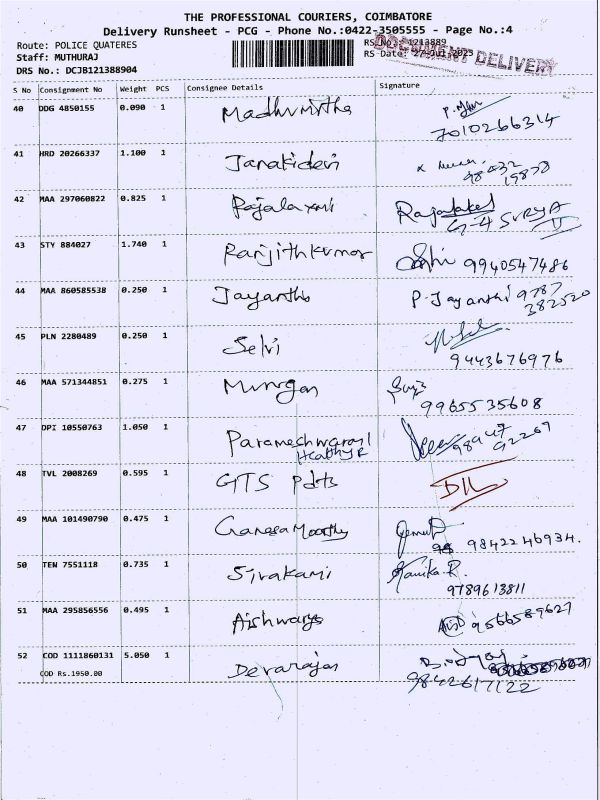 THE PROFESSIONAL COURIERS, COIMBATORE
Delivery Runsheet - PCG - Phone No.:0422-3505555 - Page No.:4
Route: POLICE QUATERES RS No.: 1213889
Staff: MUTHURAJ RS Date: 27-Jul-2023
DOCUMENT DELIVERY
DRS No.: DCJB121388904
S No Consignment No Weight PCS Consignee Details Signature
40 DDG 4850155 0.090 1 Madhumitha
7010266314
41 HRD 20266337 1.100 1 Janakidevi
98032
19878
42 MAA 297060822 0.825 1 Rajalaxmi
G-4 SURYA
43 STY 884027 1.740 1 Ranjithkumar 9940547486
44 MAA 860585538 0.250 1 Jayanthi P. Jayanthi 9787
382520
45 PLN 2280489 0.250 1 Selvi
9443676976
46 MAA 571344851 0.275 1 Murugan
9965535608
47 DPI 10550763 1.050 1 Parameshwaran
Healthy R
92269
48 TVL 2008269 0.595 1 GTS Pdts
49 MAA 101490790 0.475 1 Ganesa Moorthy
9842246934.
50 TEN 7551118 0.735 1 Sivakami Kanika.R.
9789613811
51 MAA 295856556 0.495 1 Aishwarya 9566589627
52 COD 1111860131 5.050 1 Devarajan
COD Rs.1950.00 9842617122